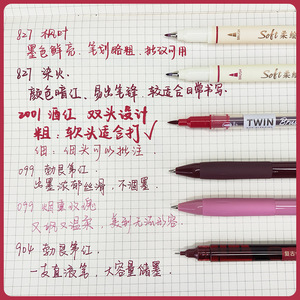 827 枫叶
墨色鲜亮，笔划略粗，批改可用
827 柒火
颜色暗红，易出笔锋，较适合日常书写
2001 酒红 双头设计
粗：软头适合打✓
细：细头可以批注
099 勃艮第红
出墨浓郁丝滑，不洇墨
099 烟熏玫瑰
又甜又温柔，美到无法形容
904 勃艮第红
一支直液笔，大容量储墨
Soft 柔绘
Soft 柔绘
TWIN